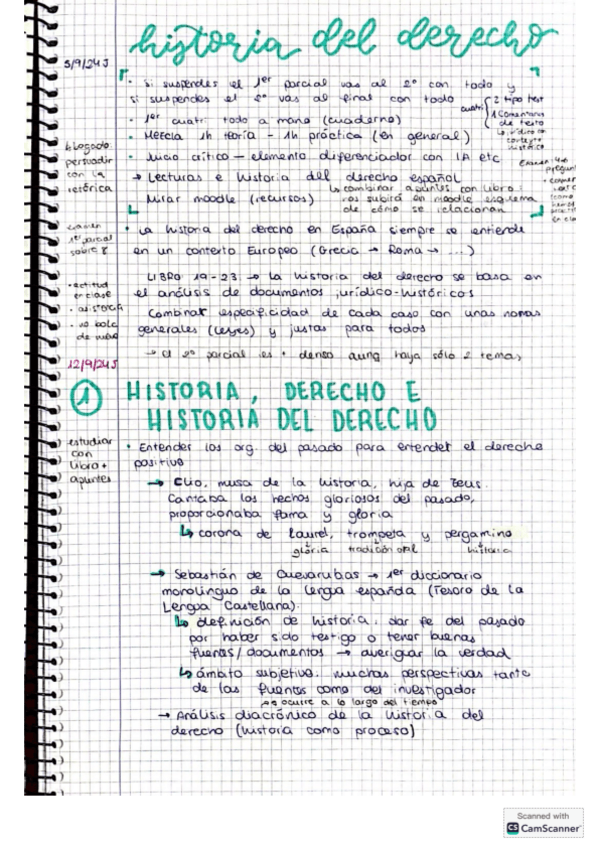 historia del derecho
5/9/24 J
· si suspendes el 1er parcial vas al 2º con todo y
si suspendes el 2º vas al final con todo
· 1er cuatri: todo a mano (cuaderno)
cuatri
2 tipo test
1 comentario
de texto
· Mezcla 1h teoría - 1h práctica (en general)
· Juicio crítico - elemento diferenciador con IA etc
→ Lecturas e historia del derecho español
↳ combinar apuntes con libro:
nos subirá en moodle esquema
de cómo se relacionan
Mirar moodle (recursos)
abogado:
persuadir
con la
retórica
· La historia del derecho en España siempre se entiende
en un contexto Europeo (Grecia → Roma → ...)
examen
1er parcial
sobre 8
LIBRO 19-23 → la historia del derecho se basa en
el análisis de documentos jurídico-históricos
· actitud
en clase
· asistencia
Combinar especificidad de cada caso con unas normas
generales (leyes) y justas para todos
→ el 2º parcial es + denso aunq haya sólo 2 temas
12/9/24 J
1 HISTORIA, DERECHO E
HISTORIA DEL DERECHO
estudiar
con
libro +
apuntes
· Entender los org. del pasado para entender el derecho
positivo
→ Clío, musa de la historia, hija de Zeus.
Cantaba los hechos gloriosos del pasado,
proporcionaba fama y gloria
↳ corona de laurel, trompeta y pergamino
gloria tradición oral historia
→ Sebastián de Cuevarubas → 1er diccionario
monolingüe de la lengua española (Tesoro de la
Lengua Castellana).
↳ definición de historia: dar fe del pasado
por haber sido testigo o tener buenas
fuentes/documentos → averiguar la verdad
↳ ámbito subjetivo: muchas perspectivas tanto
de las fuentes como del investigador
→ ocurre a lo largo del tiempo
→ Análisis diacrónico de la historia del
derecho (historia como proceso)
Scanned with
CS CamScanner